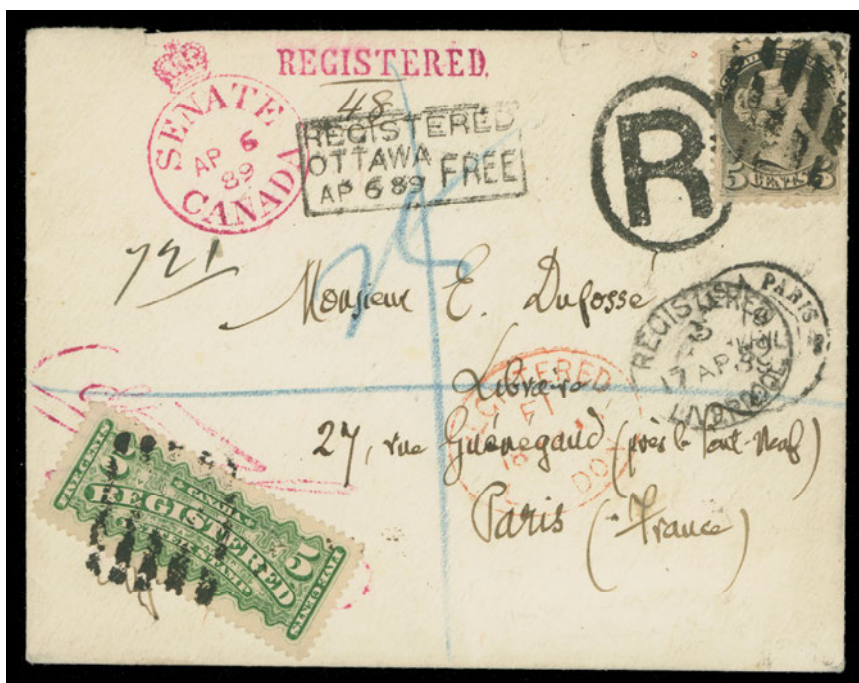 REGISTERED.
48
SENATE
AP 6
89
CANADA
REGISTERED
OTTAWA FREE
AP 6 89
R
5 CENTS 5
721
Monsieur E. Dufossé
REGISTERED
17 AP 89
LIVERPOOL
PARIS
Libraire
REGISTERED
27, rue Guénegaud (près le Pont-Neuf)
Paris (France)
CANADA
5 REGISTERED 5
LETTER STAMP
FIVE CENTS
FIVE CENTS